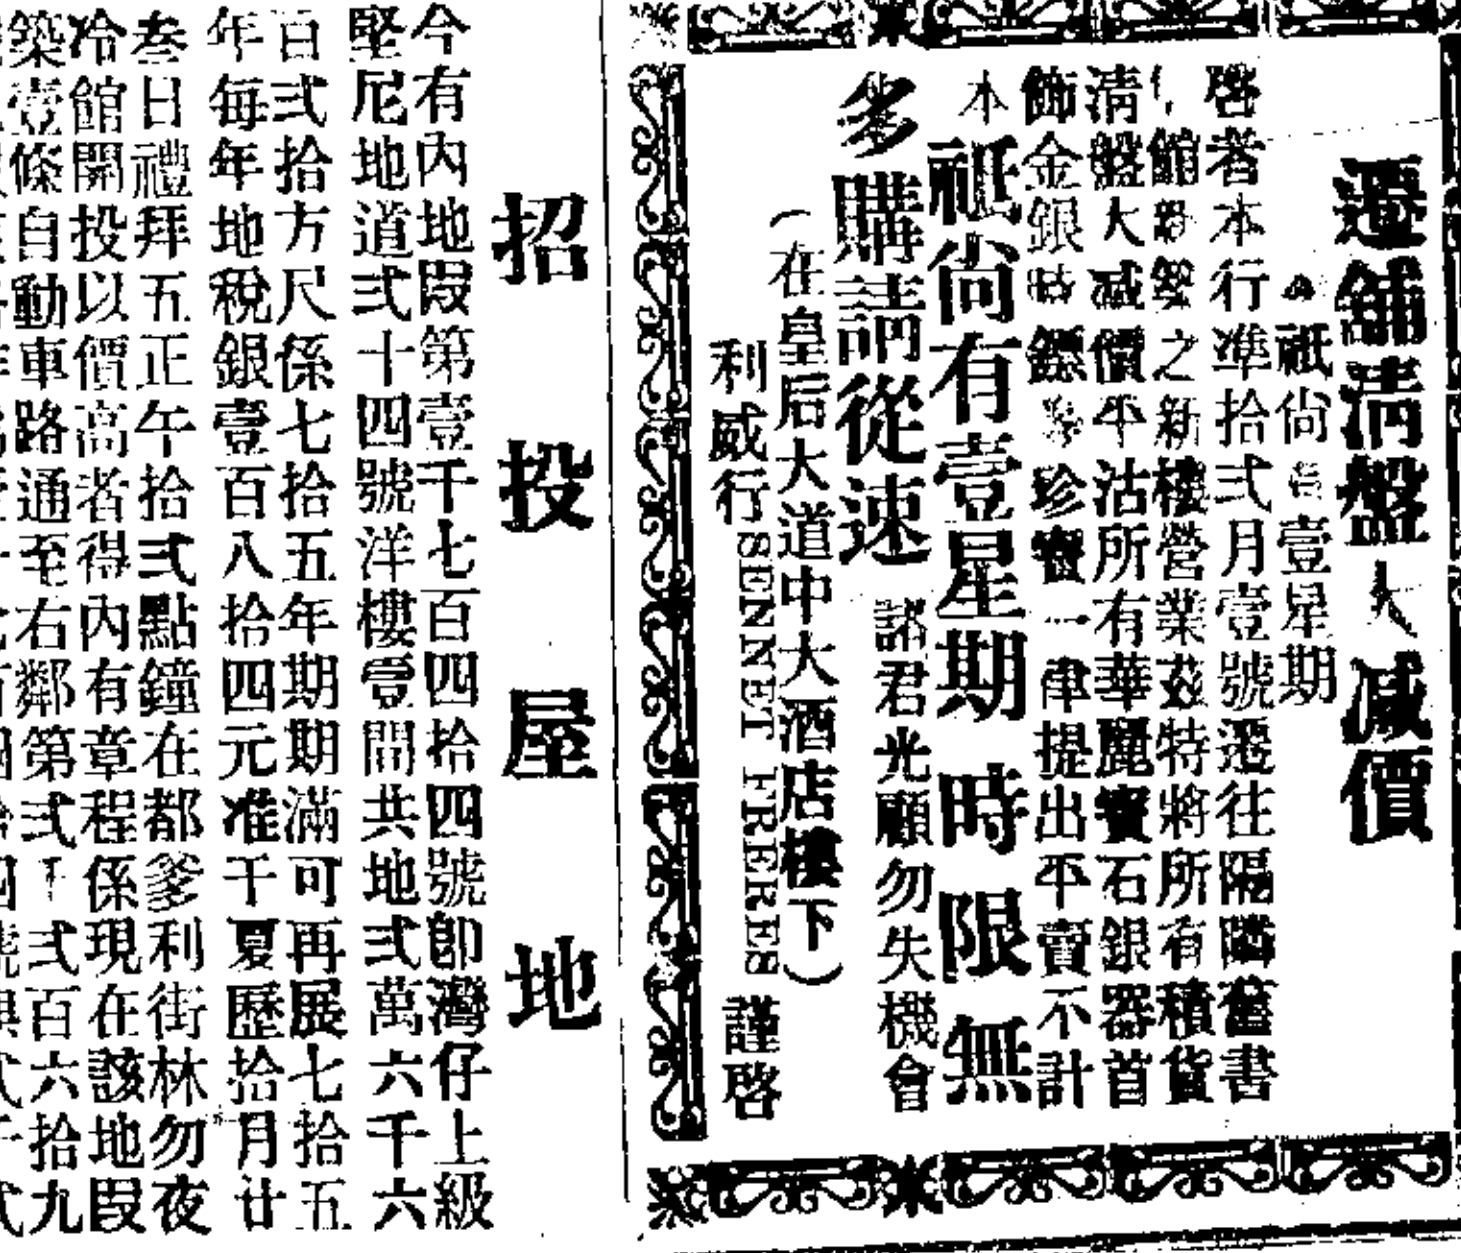 遷舖清盤大減價
祇尙壹星期
啓者本行準拾弍月壹號遷往隔隣舊書
館之新樓營業茲特將所有積貨
清盤大減價平沽所有華麗寶石銀器首
飾金銀時鏢珍寶一律提出平賣不計
本
祇尙有壹星期時限無
多購請從速
諸君光顧勿失機會
(在皇后大道中大酒店樓下)
利威行 SENNET FRERES 謹啓
招投屋地
今有內地段第壹千七百四拾四號卽灣仔上級
堅尼地道弍十四號洋樓壹間共地弍萬六千六
百弍拾方尺係七拾五年期期滿可再展七拾五
年每年地稅銀壹百八拾四元准于夏歷拾月廿
叁日禮拜五正午拾弍點鐘在都爹利街林勿夜
冷館開投以價高者得內有章程係現在該地段
築壹條自動車路通至右鄰第弍千弍百六拾九